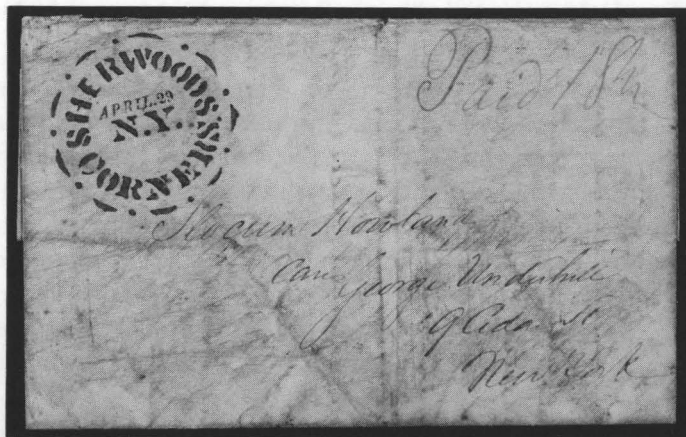 SHERWOODS'S
APRIL.29
N.Y.
CORNERS
Paid 18½
Slocum Howland
Care George Underhill
9 Cedar St
New York